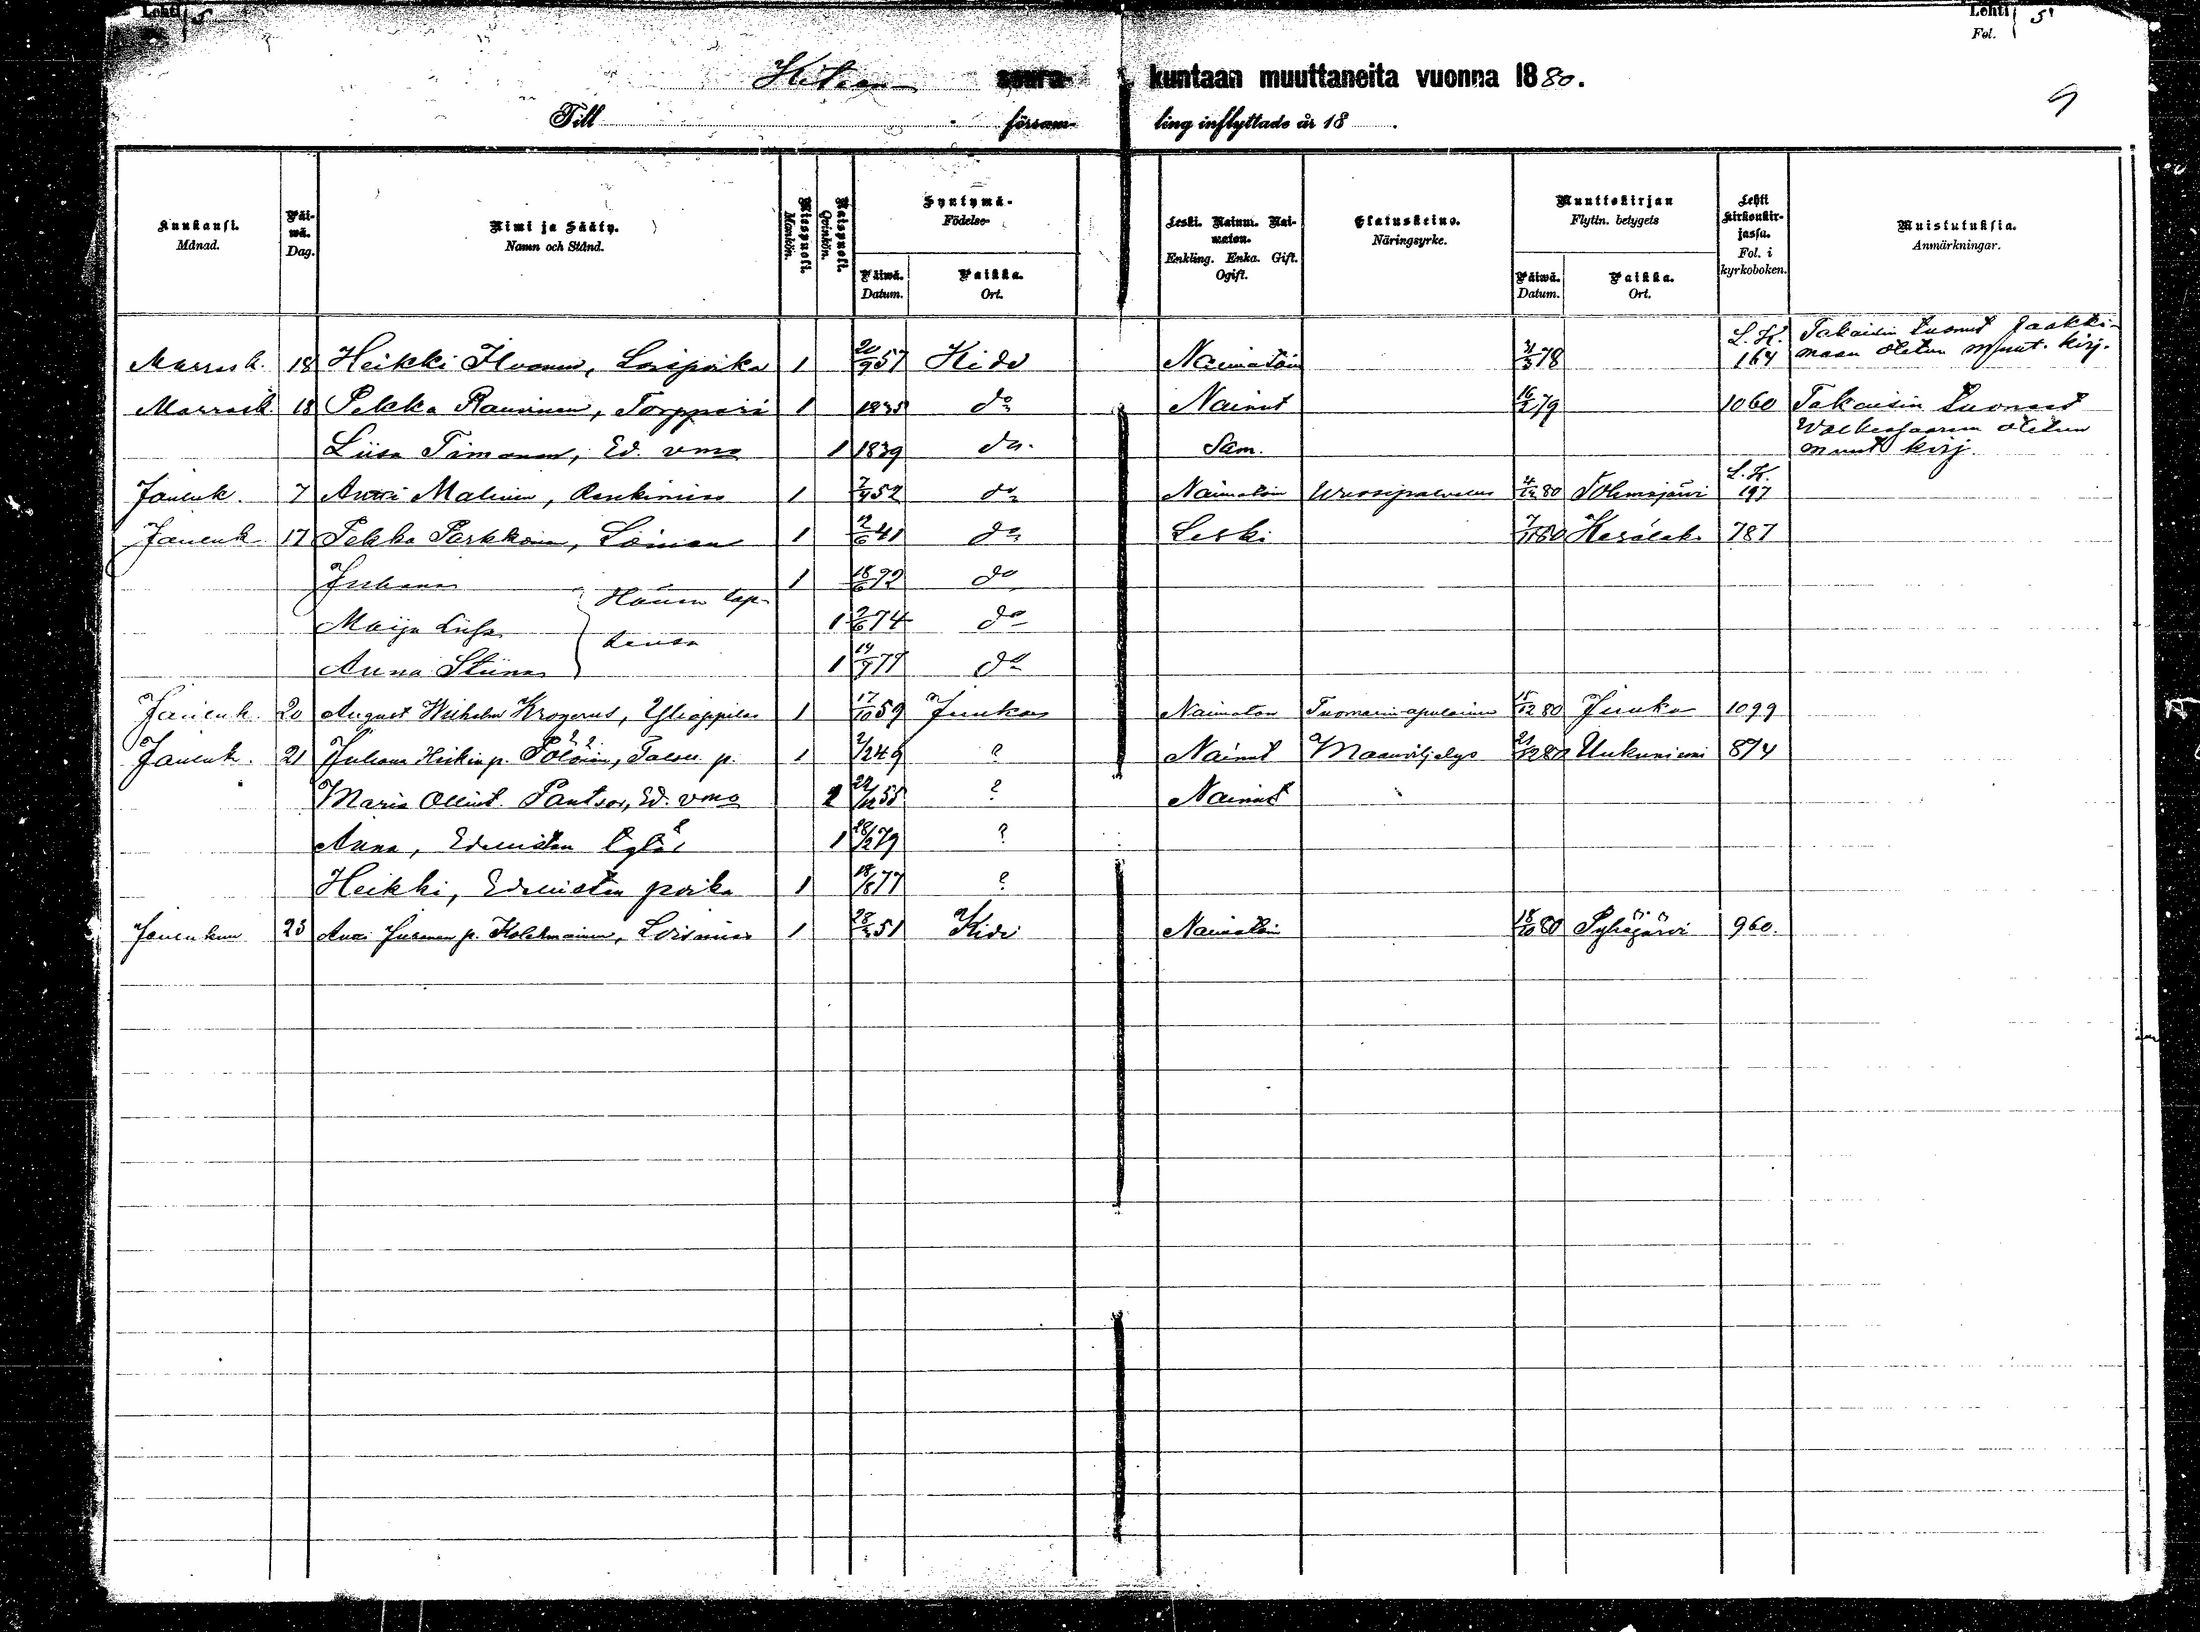 Lehti 5
Lehti 5
Fol.
9
Kiteen seura- kuntaan muuttaneita vuonna 1880.
Till försam- ling inflyttade år 18 .
Kuukausi. Månad. Päiwä. Dag. Nimi ja Sääty. Namn och Stånd. Miespuoli. Mankön. Naispuoli. Qvinkön. Syntymä- Födelse- Päiwä. Datum. Paikka. Ort. Leski. Nainu. Naimaton. Enkling. Enka. Gift. Ogift. Elatuskeino. Näringsyrke. Muuttokirjan Flyttn. betygets Päiwä. Datum. Paikka. Ort. Lehti kirkonkirjassa. Fol. i kyrkoboken. Muistutuksia. Anmärkningar.
Marrask. 18 Heikki Ikonen, Loispoika 1 20/9 57 Kide Naimatoin 31/3 78 L.K. 164 Takaisin tuonut Jaakkimaan otetun muut. kirj.
Marrask. 18 Pekka Rauninen, Torppari 1 1835 do Nainut 16/2 79 1060 Takaisin tuonut
Liisa Timonen, Ed. vmo 1 1839 do. Sam. otetun muut kirj.
Jouluk. 7 Antti Malinen, Renkimies 1 7/4 52 do Naimatoin Vuosipalvelus 4/12 80 Tohmajärvi L.K. 197
Jouluk 17 Pekka Parkkoin, Loinen 1 12/6 41 do Leski 7/11 80 Kesälak. 787
Juhana 1 18/6 72 do
Hänen lap-
Maija Liisa 1 2/6 74 do
sensa
Anna Stiina 1 14/9 77 do
Jouluk. 20 August Wilhelm Krogerus, Ylioppilas 1 17/10 59 Juuka Naimaton Tuomarin apulainen 15/12 80 Juuka 1099
Jouluk. 21 Juhana Heikinp. Pölöin, Talon p. 1 2/2 49 ? Nainut Maanviljelys 21/12 80 Uukuniemi 874
Maria Ollint. Pantsar, Ed. vmo 1 22/12 55 ? Nainut
Anna, Edellisten tytär 1 28/2 79 ?
Heikki, Edellisten poika 1 18/5 77 ?
Joulukuu 23 Antti Juhanan p. Kolehmainen, Loismies 1 28/3 51 Kide Naimatoin 18/10 80 Pyhäjärvi 960.